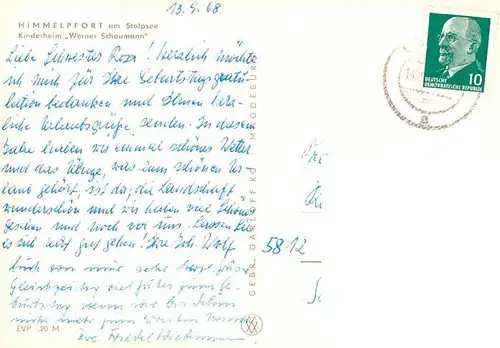 13.9.68
HIMMELPFORT am Stolpsee
Kinderheim „Werner Schaumann"
Liebe Schwester Rosa! Herzlich möchte
ich mich für Ihre Geburtstagsgratu-
lation bedanken und Ihnen herz-
liche Urlaubsgrüße senden. In diesem
Jahre haben wir einmal schönes Wetter
und das Übrige, was zum schönen Ur
laub gehört, ist da; die Landschaft
wunderschön und wir haben viel Schönes
gesehen und noch vor uns. Lassen Sie
es sich gut gehen! Ihre Joh. Wolf
Auch von mir sehr herzl. Grüße
Gleichzeitig viel Gutes zum Ge-
burtstag wenn wir
nicht mehr zum
Ihre Friedel
DEUTSCHE
DEMOKRATISCHE REPUBLIK
10
5812
GEBR. GARLOFF KG MAGDEBURG
EVP -,20 M